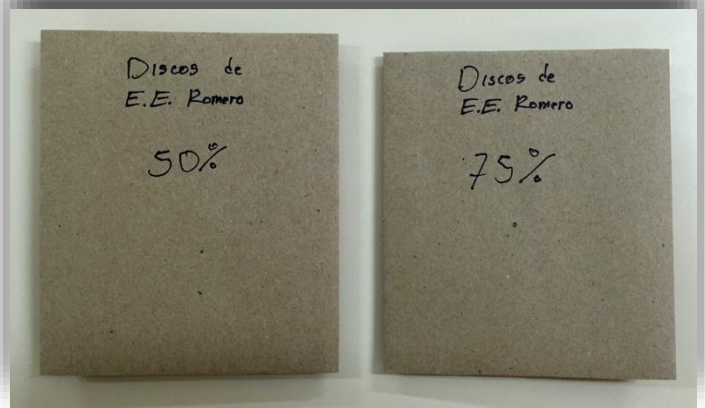 Discos de
E.E. Romero
50%
Discos de
E.E. Romero
75%